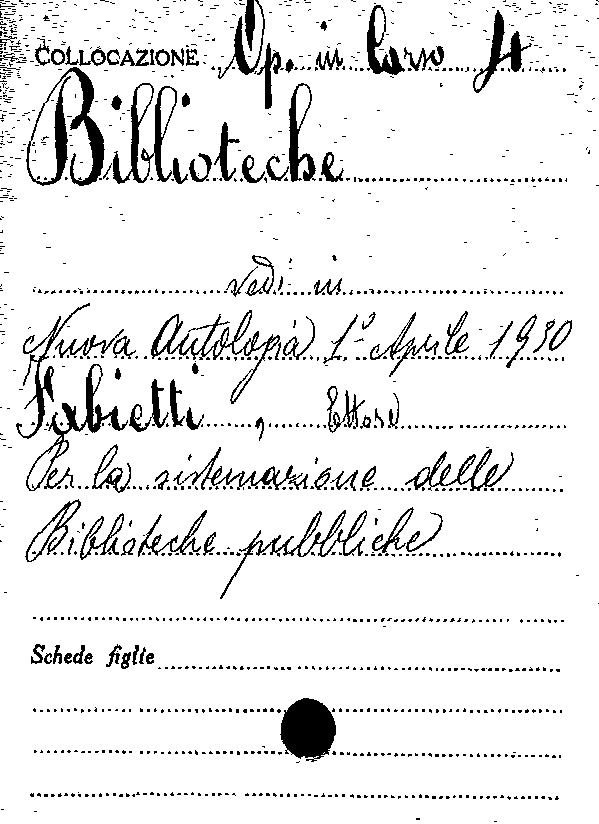 COLLOCAZIONE Op. in Corso 4
Biblioteche
vedi in
Nuova Antologia 1º Aprile 1930
Fabietti, Ettore
Per la sistemazione delle
Biblioteche pubbliche
Schede figlie